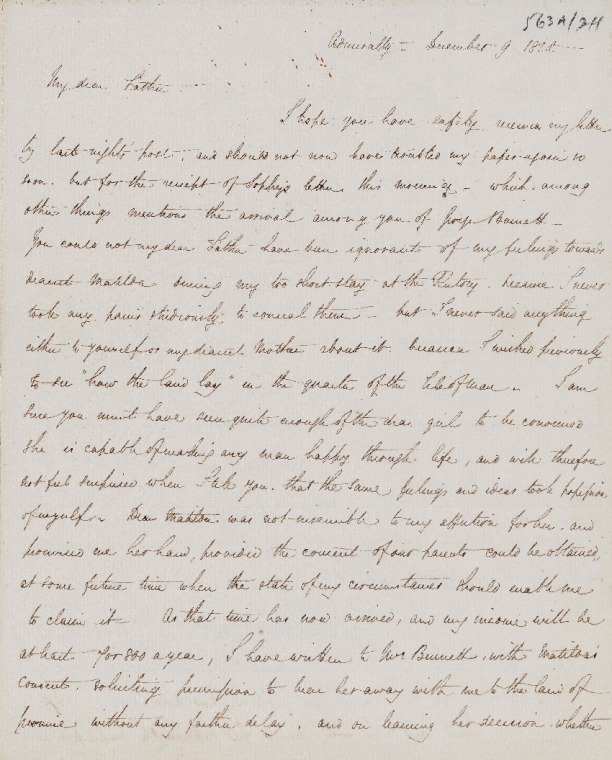 563A/3H
Admiralty - December 9 18
My dear Father
I hope you have safely received my letter
by last night's post, and should not now have troubled my papa again so
soon, but for the receipt of Sophy's letter this morning - which among
other things mentions the arrival among you of Bunnett -
You could not my dear Father have been ignorant of my feelings towards
dearest Matilda during my too short stay at the Rectory. because I never
took any pains studiously to conceal them - but I never said anything
either to yourself or my dearest Mother about it because I wished previously
to see "how the land lay" in the quarter of the Isle of Man - I am
sure you must have seen quite enough of the dear girl to be convinced
she is capable of making any man happy through life, and will therefore
not feel surprised when I tell you that the same feelings and ideas took possession
of myself. Dear Matilda was not insensible to my affection for her and
promised me her hand, provided the consent of our parents could be obtained,
at some future time when the state of my circumstances should enable me
to claim it As that time has now arrived, and my income will be
at least 7 or 800 a year, I have written to Mrs Bunnett, with Matilda's
consent, soliciting permission to bear her away with me to the land of
promise without any farther delay, and on learning her decision whether